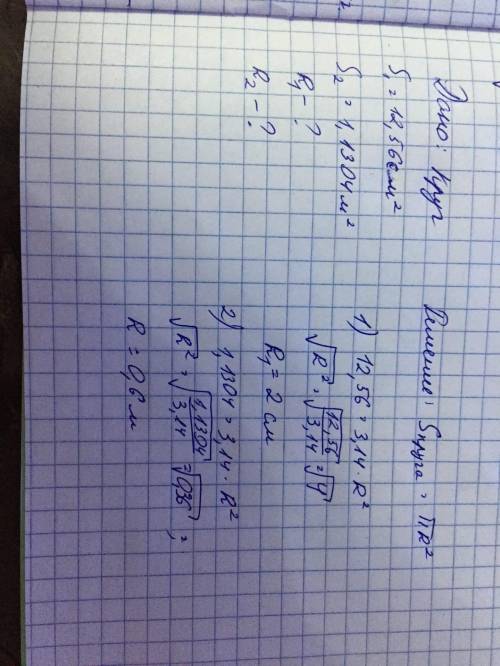 Дано: Круг
S₁ = 12,56 см²
S₂ = 1,1304 м²
R₁ - ?
R₂ - ?
Решение: Sкруга = ПR²
1) 12,56 = 3,14 · R²
√R² = √12,56/3,14 = √4
R₁ = 2 см
2) 1,1304 = 3,14 · R²
√R² = √1,1304/3,14 = √0,36 =
R = 0,6 м